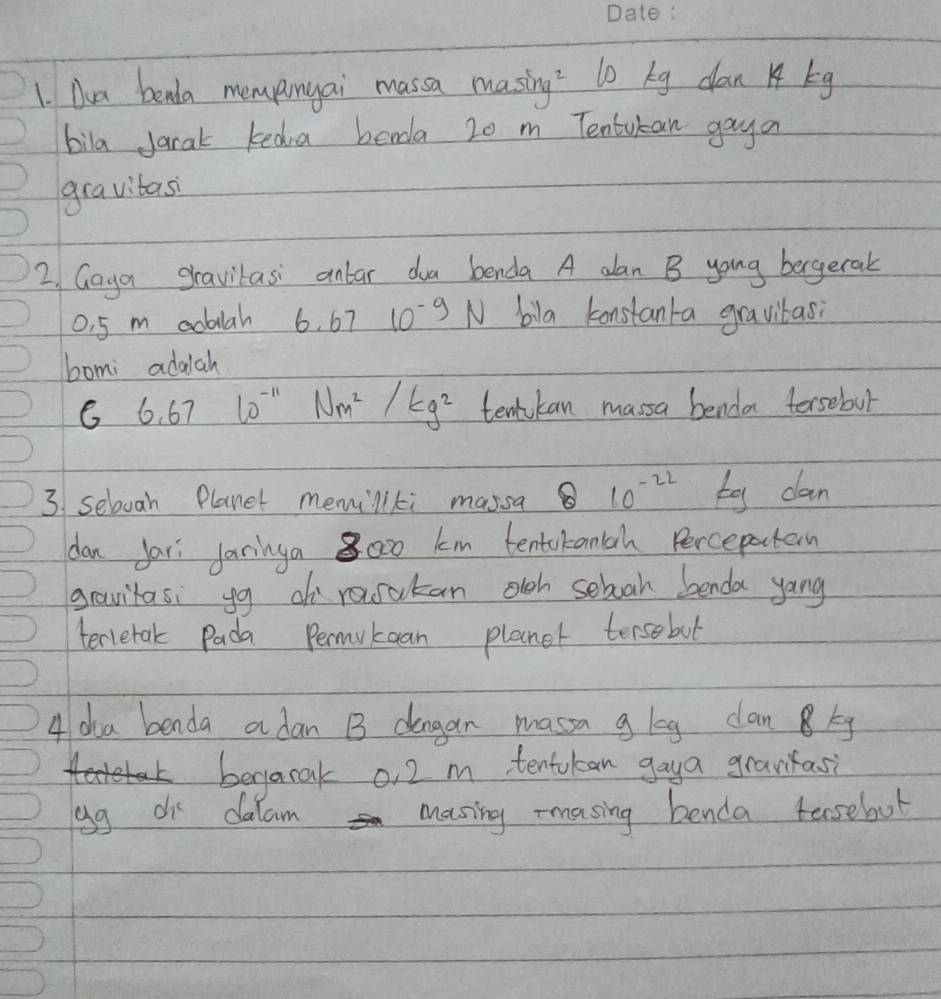 Date :
1. Dua benda mempunyai massa masing² 10 kg dan 14 kg
bila Jarak kedua benda 20 m Tentukan gaya
gravitasi
2. Gaya gravitasi antar dua benda A dan B yang bergerak
0,5 m adalah 6,67 10⁻⁹ N bila konstanta gravitasi
bomi adalah
G 6,67 10⁻¹¹ Nm² / kg² tentukan massa benda tersebut
3. Sebuah Planet memiliki massa 8 10⁻²² kg dan
dan Jari Jarinya 3000 km tentukanlah Percepatan
gravitasi yg di rasakan oleh sebuah benda yang
terletak Pada Permukaan planet tersebut
4 dua benda a dan B dengan massa 9 kg dan 8 kg
berjarak 0,2 m tentukan gaya gravitasi
yg di dalam masing -masing benda tersebut